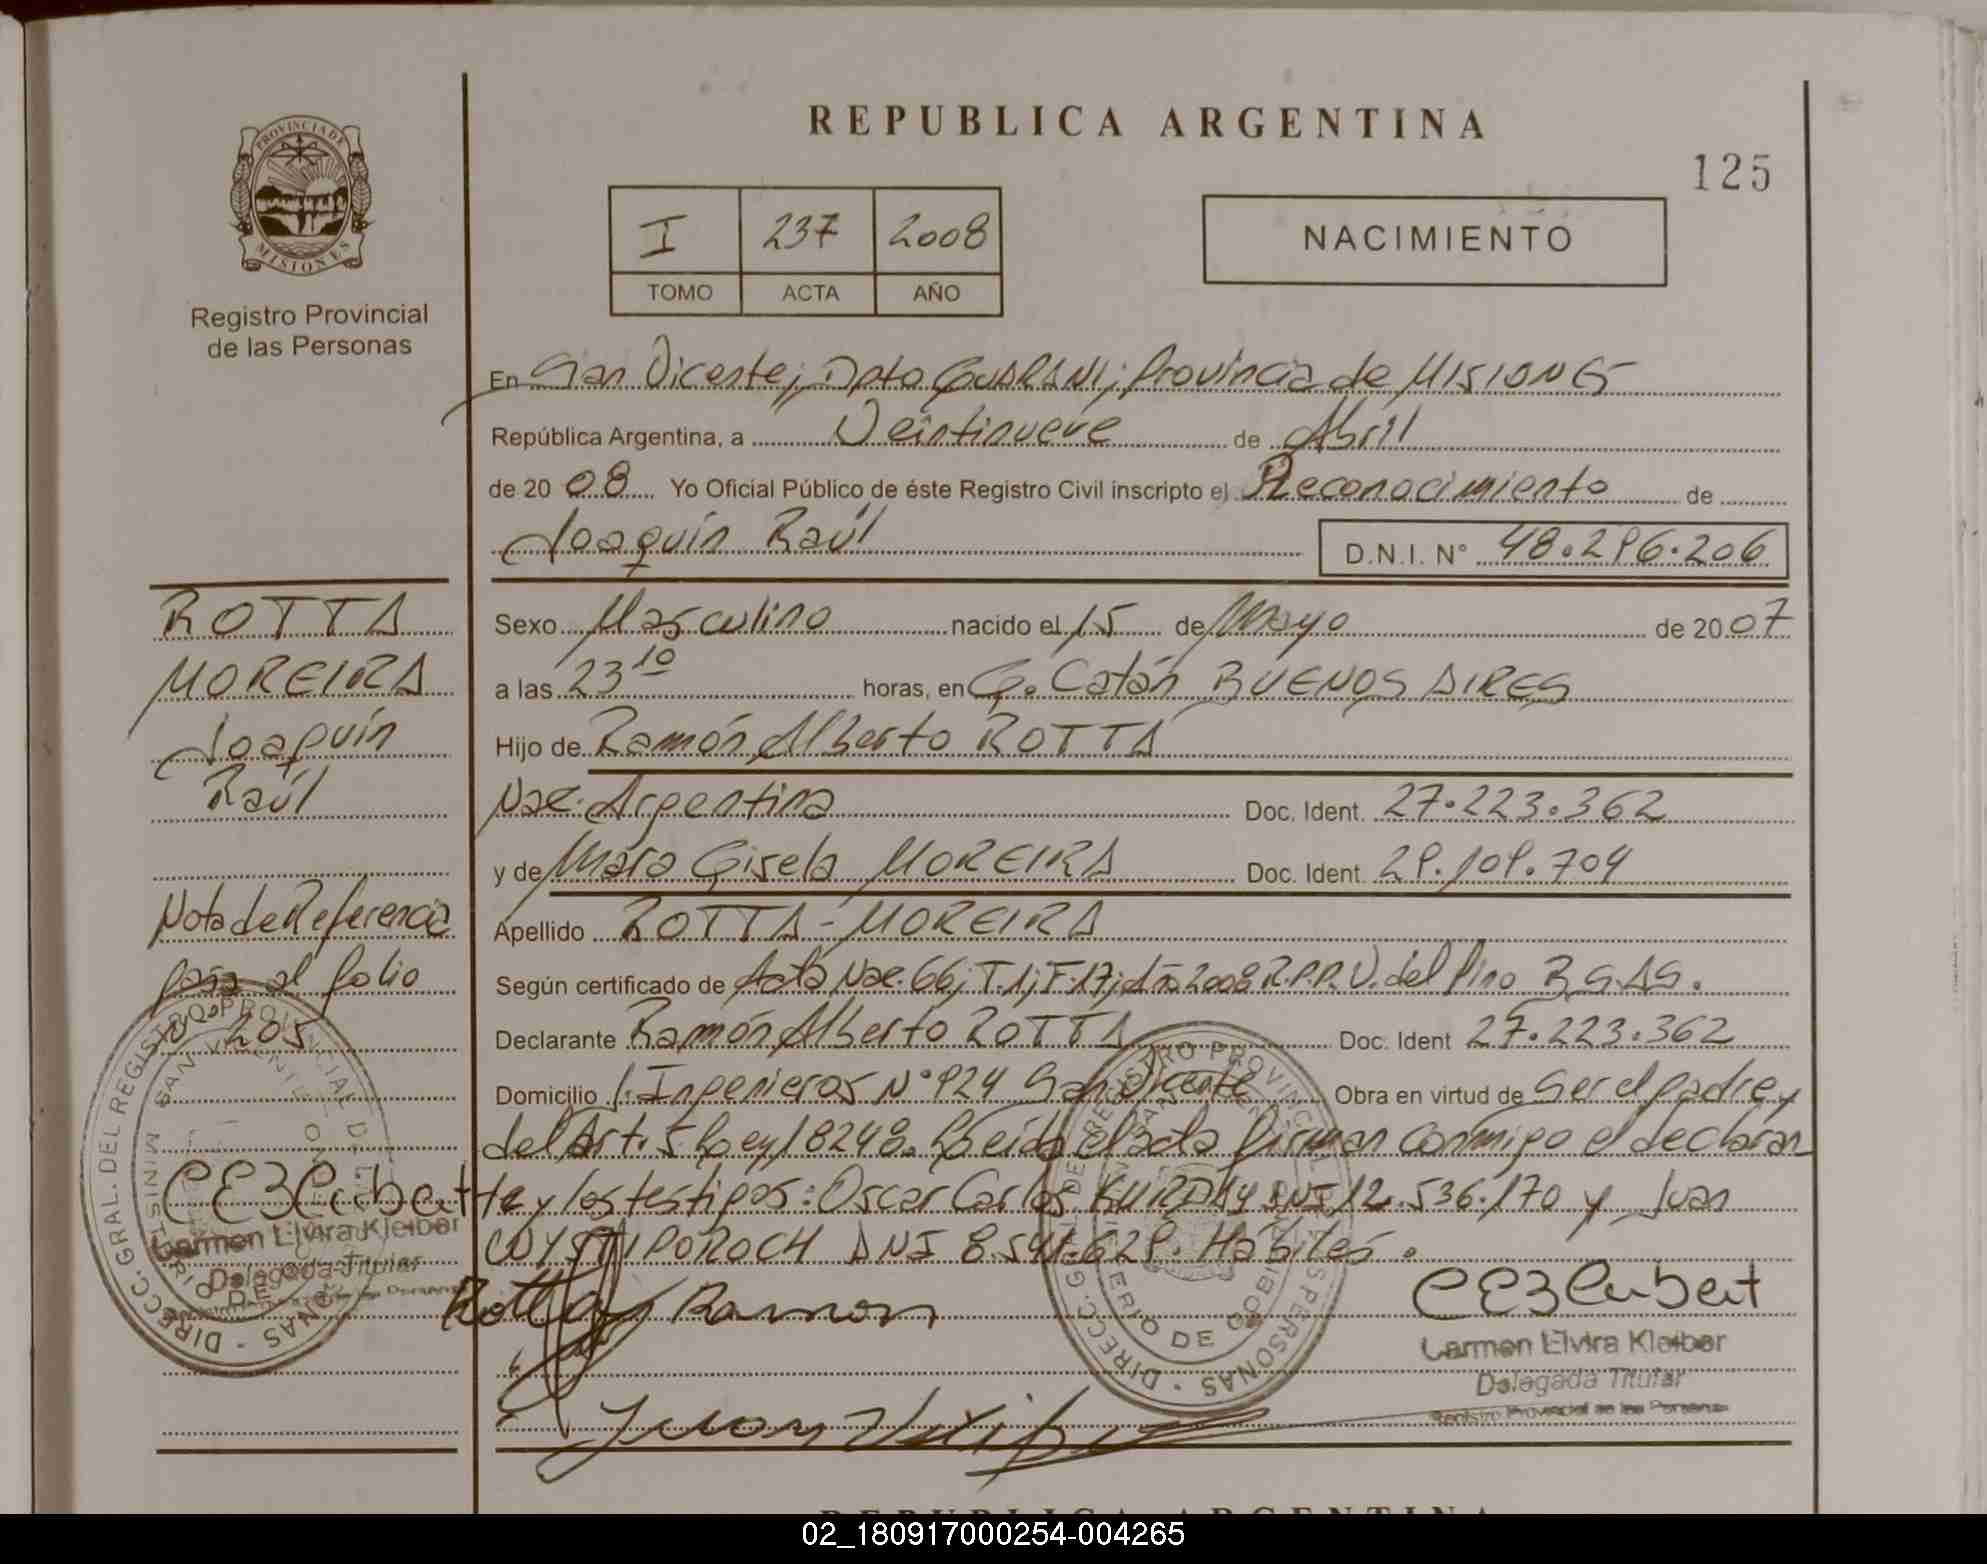 REPUBLICA ARGENTINA
125
PROVINCIA DE
MISIONES
Registro Provincial
de las Personas
I 237 2008
TOMO ACTA AÑO
NACIMIENTO
En San Vicente; Dpto GUARANI; Provincia de MISIONES
República Argentina, a Veintinueve de Abril
de 20 08 Yo Oficial Público de éste Registro Civil inscripto el Reconocimiento de
Joaquín Raúl D.N.I. N° 48.296.206
ROTTA
MOREIRA
Joaquín
Raúl
Nota de Referencia
pasa al folio
Nº 205
Sexo Masculino nacido el 15 de Mayo de 2007
a las 23 10 horas, en G. Catán BUENOS AIRES
Hijo de Ramón Alberto ROTTA
Nac. Argentina Doc. Ident. 27.223.362
y de Mara Gisela MOREIRA Doc. Ident. 29.109.704
Apellido ROTTA - MOREIRA
Según certificado de Acta Nac. 66; T.1; F.17; Año 2008 R.P.P. V. del Pino BS.AS.
Declarante Ramón Alberto ROTTA Doc. Ident 27.223.362
Domicilio J. Ingenieros N° 924 San Vicente Obra en virtud de Ser el padre y
del Art. 5 Ley 18248. Leída el acta firman conmigo el declaran
te y los testigos: Oscar Carlos DNI 12.536.170 y Juan
DNI 8.541.629. Hábiles.
Carmen Elvira Kleiber
Delegada Titular
Registro Provincial de las Personas
Rotta Ramon
Juan
Carmen Elvira Kleiber
Delegada Titular
Registro Provincial de las Personas
DIRECC. GRAL. DEL REGISTRO PROVINCIAL DE LAS PERSONAS
SAN VICENTE
MINISTERIO DE GOBIERNO
REPUBLICA ARGENTINA
02_180917000254-004265